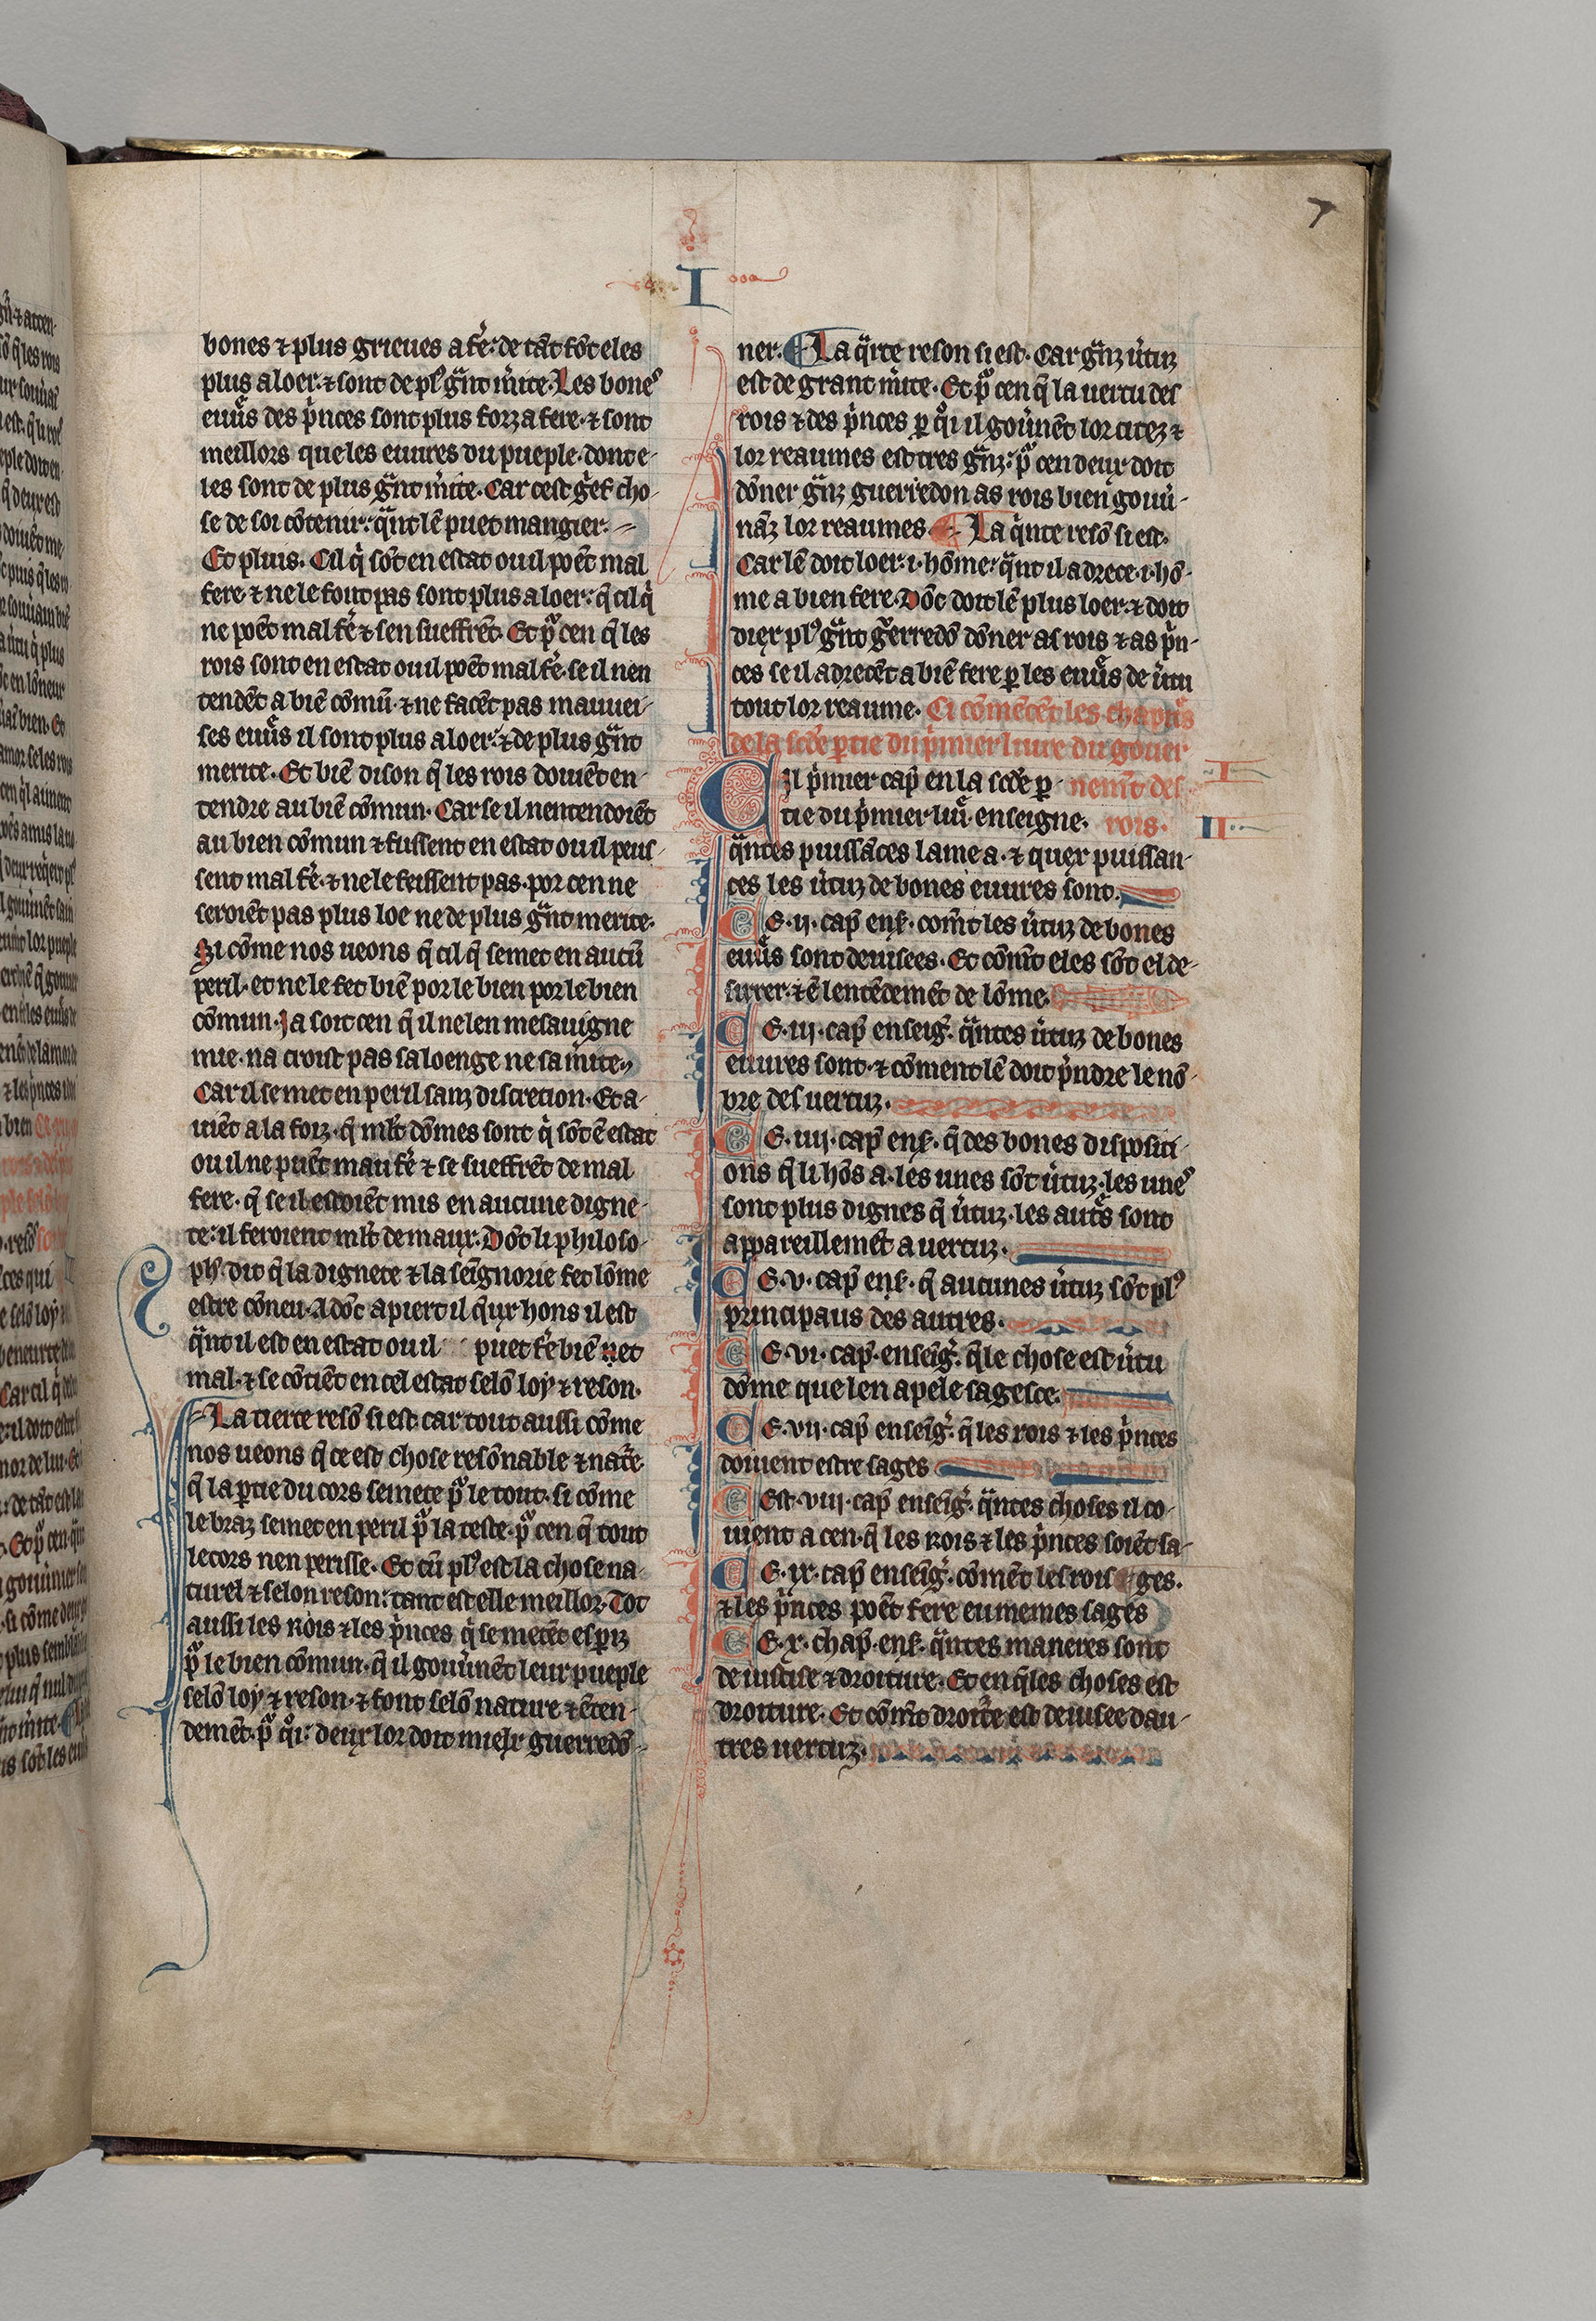 7
I
bones ⁊ plus grieues a fẻ. de tãt sõt eles
plus a loer. ⁊ sont de plꝰ gᵃnt m̉ite. Les bonеꝰ
euuᵉs des pⁱnces sont plus forz a fere. ⁊ sont
meillors que les euures du pueple. dont e-
les sont de plus gᵃnt m̉ite. Car cest gᵉf cho-
se de soi cõtenir. qᵃnt lẽ puet mangier.
Et pluis. Cil qⁱ sõt en estat ou il poẽt mal
fere. ⁊ ne le font pas sont plus a loer. q̃ cil qⁱ
ne poẽt mal fẻ ⁊ sen sueffrẽt. Et pᵒ cen q̃ les
rois sont en estat ou il poẽt mal fẻ. se il nen
tendẽt a biẽ cõmũ. ⁊ ne facẽt pas mauuei-
ses euuᵉs il sont plus a loer. ⁊ de plus gᵃnt
merite. Et biẽ dison q̃ les rois doiuẽt en-
tendre au biẽ cõmun. Car se il nentendoiẽt
au bien cõmun ⁊ fussent en estat ou il peus-
sent mal fẻ. ⁊ ne le feissent pas. por cen ne
seroiẽt pas plus loe ne de plus gᵃnt merite.
Si cõme nos ueons q̃ cil q̃ se met en aucũ
peril. et ne le fet biẽ por le bien por le bien
cõmun. Ja soit cen q̃ il ne len mesauigne
mie. na croist pas sa loenge ne sa m̉ite.
Car il se met en peril sanz discretion. Et a-
uiẽt a la foiz. q̃ ml̃t dõmes sont qⁱ sõt ẽ estat
ou il ne puẽt mau fẻ ⁊ se sueffrẽt de mal
fere. q̃ se il estoiẽt mis en aucune digne-
te. il feroient ml̃t de maux. Dõt li philoso-
phꝰ dit q̃ la dignete ⁊ la seignorie fet lõme
estre cõneu. Adõc apiert il q̃ux hons il est
qᵃnt il est en estat ou il puet fẻ biẽ ⁊ et
mal. ⁊ se cõtiẽt en cel estat selõ loy ⁊ reson.
La tierce resõ si est. car tout aussi cõme
nos ueons q̃ ce est chose resõnable ⁊ nat̉e
q̃ la ꝑtie du cors se mete pᵒ le tout. si cõme
le braz se met en peril pᵒ la teste. pᵒ cen q̃ tout
le cors nen perisse. Et cũ plꝰ est la chose na-
turel ⁊ selon reson. tant est elle meillor. Tot
aussi les rois ⁊ les pⁱnces q̃ se metẽt es ꝑiz
pᵒ le bien cõmun. q̃ il gouũnẽt leur pueple
selõ loy ⁊ reson. ⁊ font selõ nature ⁊ ẽten-
demẽt. pᵒ qᵒi. deux lor doit mielx guerredõ-
ner. La qᵃrte reson si est. Car gᵃnz ũtuz
est de grant m̉ite. Et pᵒ cen q̃ la uertu des
rois ⁊ des pⁱnces ꝑ qᵒi il goũnẽt lor citez ⁊
lor reaumes est tres gᵃnz. pᵒ cen deux doit
dõner gᵃnz guerredon as rois bien gouũ-
nãz lor reaumes. La qⁱnte resõ si est.
Car lẽ doit loer .i. hõme. qᵃnt il adrece .i. hõ-
me a bien fere. Dõc doit lẽ plus loer. ⁊ doit
diex plꝰ gᵃnt g̉erredõ dõner as rois ⁊ as pⁱn-
ces se il adrecẽt a biẽ fere ꝑ les euuᵉs de ũtu
tout lor reaume. Ci cõmẽcẽt les chapitᵉs
de la scᵒde ꝑtie du pⁱmier liure du gouer
Cil pⁱmier cap̃ en la scᵒde ꝑ- nemt̃ des
tie du pⁱmier liuᵉ. enseigne. rois.
I
II
qᵃntes puissãces lame a. ⁊ quex puissan-
ces les ũtuz de bones euures sont.
Ce .ii. cap̃ enſ. com̃t les ũtuz de bones
euuᵉs sont deuisees. Et cõm̃t eles sõt el de-
sirrer. ⁊ ẽ lentẽdemẽt de lõme.
Ce .iii. cap̃ enseig̃. qᵃntes ũtuz de bones
euures sont. ⁊ cõment lẽ doit pⁱndre le nõ-
bre des uertuz.
Ce .iiii. cap̃ enſ. q̃ des bones dispositi-
ons q̃ li hõs a. les unes sõt ũtuz. les uneꝰ
sont plus dignes q̃ ũtuz. les autᵉs sont
appareillemẽt a uertuz.
Ce .v. cap̃ enſ. q̃ aucunes ũtuz sõt plꝰ
principaus des autres.
Ce .vi. cap̃. enseig̃. q̃le chose est ũtu
dõme que len apele sagesce.
Ce .vii. cap̃ enseig̃. q̃ les rois ⁊ les pⁱnces
doiuent estre sages
Cest .viii. cap̃ enseig̃. qᵃntes choses il co-
uient a cen. q̃ les rois ⁊ les pⁱnces soiẽt sa-
Ce .ix. cap̃ enseig̃. cõmẽt les rois ges.
⁊ les pⁱnces poẽt fere eumemes sages
Ce .x. chap̃. enſ. qᵃntes maneres sont
de iustise ⁊ droiture. Et en q̃les choses est
droiture. Et cõm̃t droit̉e est deuisee dau-
tres uertuz.